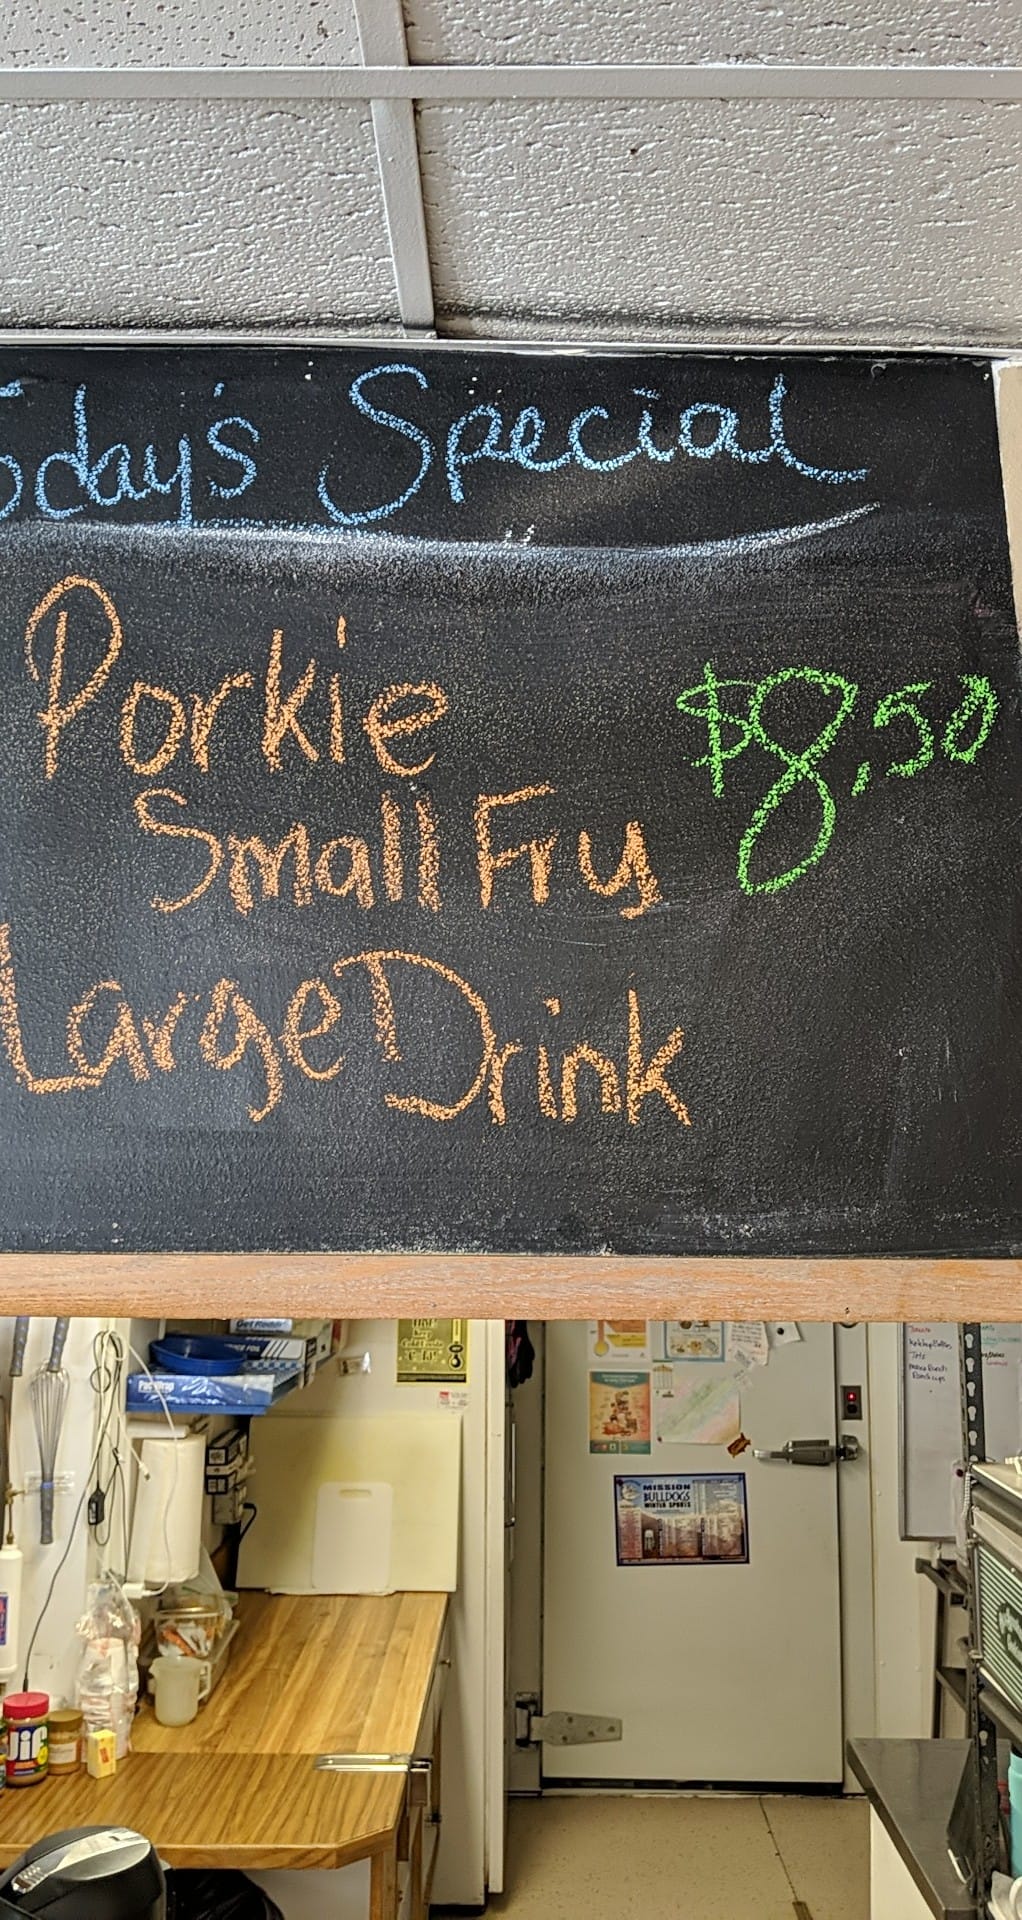 Today's Special
Porkie
$8.50
Small Fry
Large Drink
MISSION
BULLDOGS
WINTER SPORTS
Jif